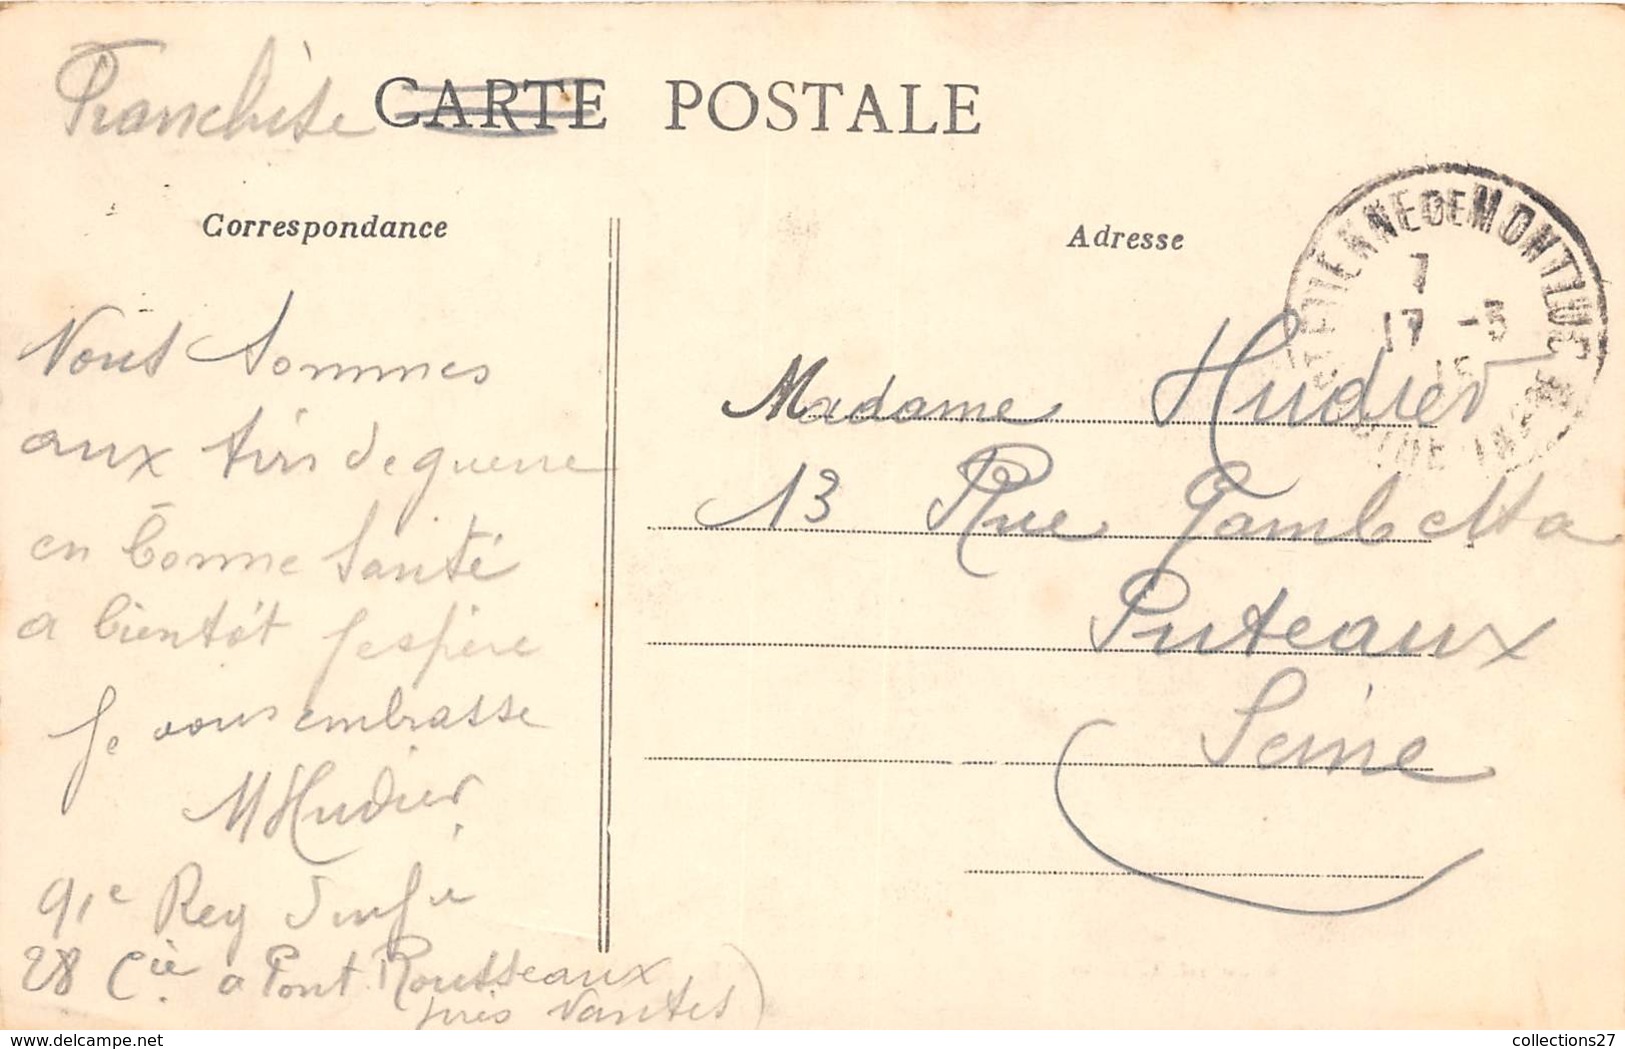 Franchise CARTE POSTALE
Correspondance
Nous sommes
aux tirs de guerre
en bonne santé
a bientôt j'espère
Je vous embrasse
M Hudier
91e Reg Inf ie
28 Cie a Pont Rousseaux
près Nantes)
Adresse
ST ETIENNE DE MONTLUC
7
17 -5
15
LOIRE INFRE
Madame Hudier
13 Rue Gambetta
Puteaux
Seine
www.delcampe.net
collections27